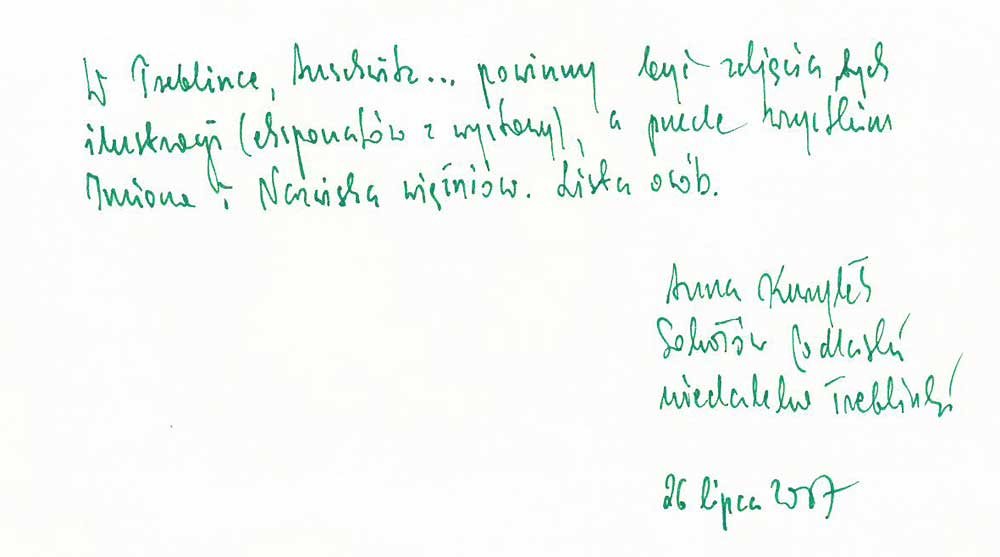 W Treblince, Auschwitz... powinny być zdjęcia tych
ilustracji (eksponatów z wystawy), a przede wszystkim
Imiona i Nazwiska więźniów. Lista osób.
Anna
Sokołów Podlaski
niedaleko Treblinki
26 lipca 2007